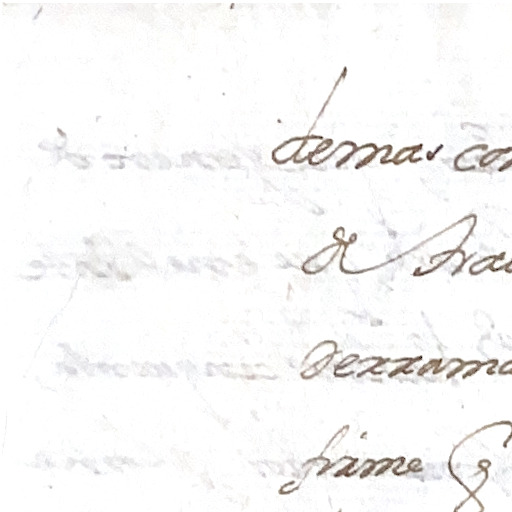 demas con
de tra
derrama
firme q